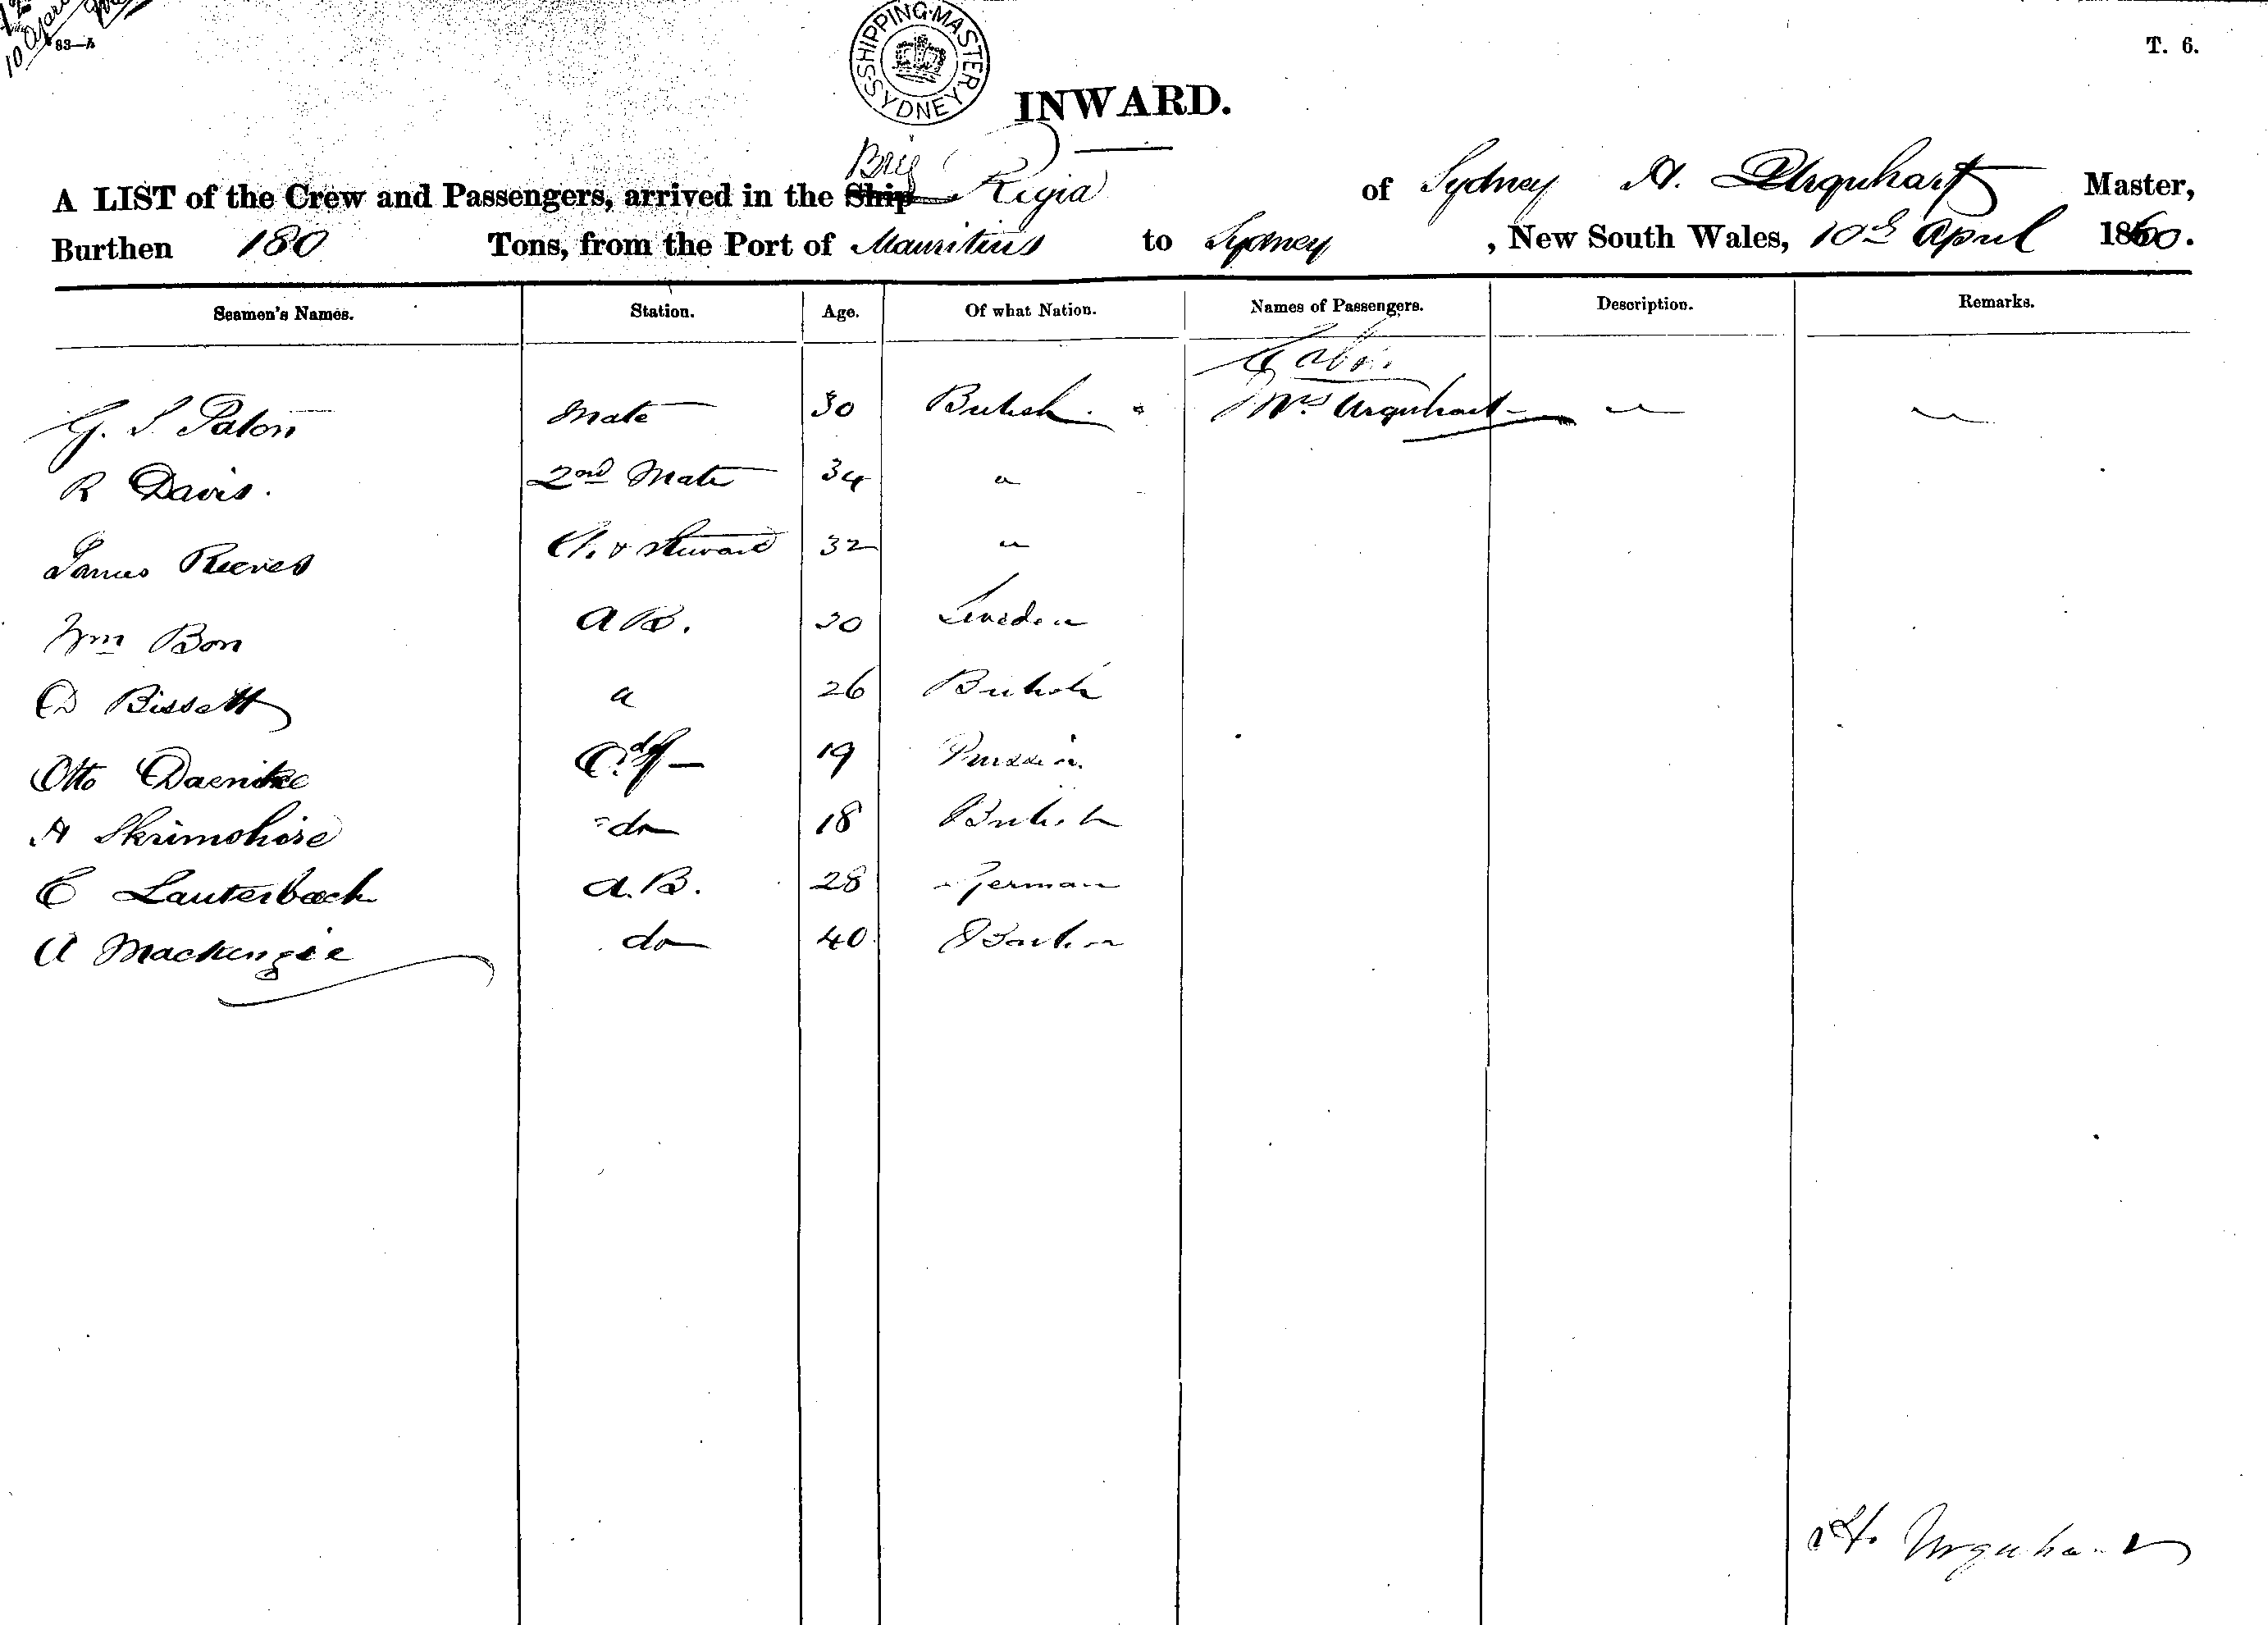 10 April
83—A
SHIPPING MASTER SYDNEY
T. 6.
INWARD.
Brig
A LIST of the Crew and Passengers, arrived in the Ship Rigia of Sydney H. Urquhart Master,
Burthen 180 Tons, from the Port of Mauritius to Sydney , New South Wales, 10th April 1860.
Seamen's Names. Station. Age. Of what Nation. Names of Passengers. Description. Remarks.
Cabin
G. S. Paton Mate 30 British Mrs Urquhart
R Davis. 2nd Mate 34 "
James Reeves & Steward 32 "
Wm Bon A B. 30 Sweden
D Bissett " 26 British
Otto Daenitze 19 Prussia
H Skrimshire do 18 British
C Lauterbach A.B. 28 German
A Mackenzie do 40
H. Urquhart